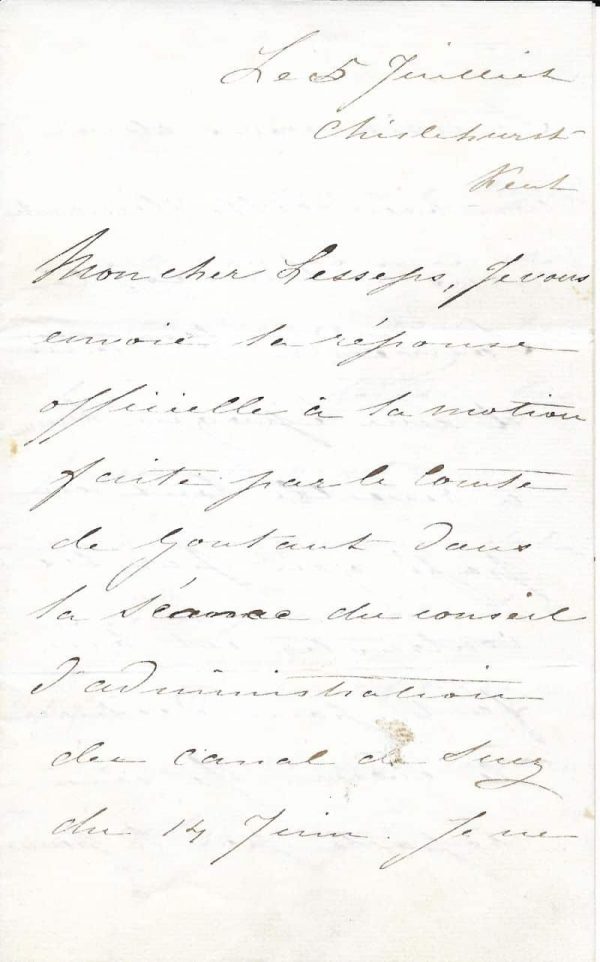 Le 5 Juilliet
Chislehurst
Kent
Mon cher Lesseps, Je vous
envoie la réponse
officielle à la motion
faite par le Comte
de Gontaut dans
la Séance du conseil
d'administration
du Canal de Suez
du 14 Juin. Je ne